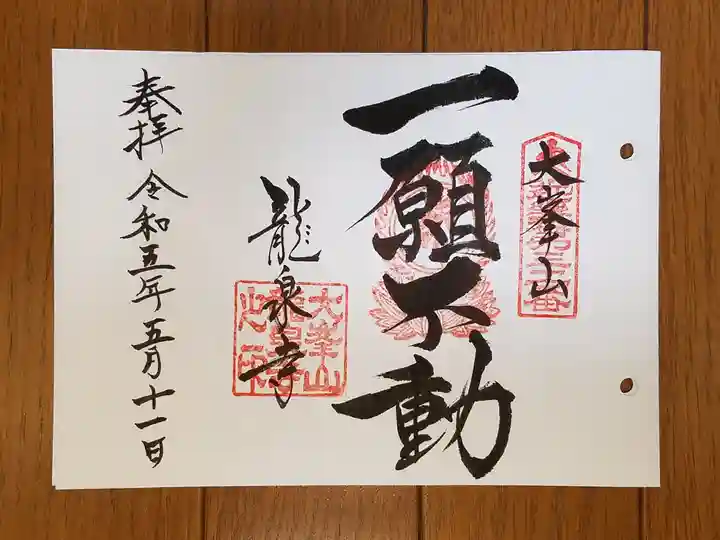 大峯山
一願不動
龍泉寺
大峯山
奉拝
令和五年五月十一日